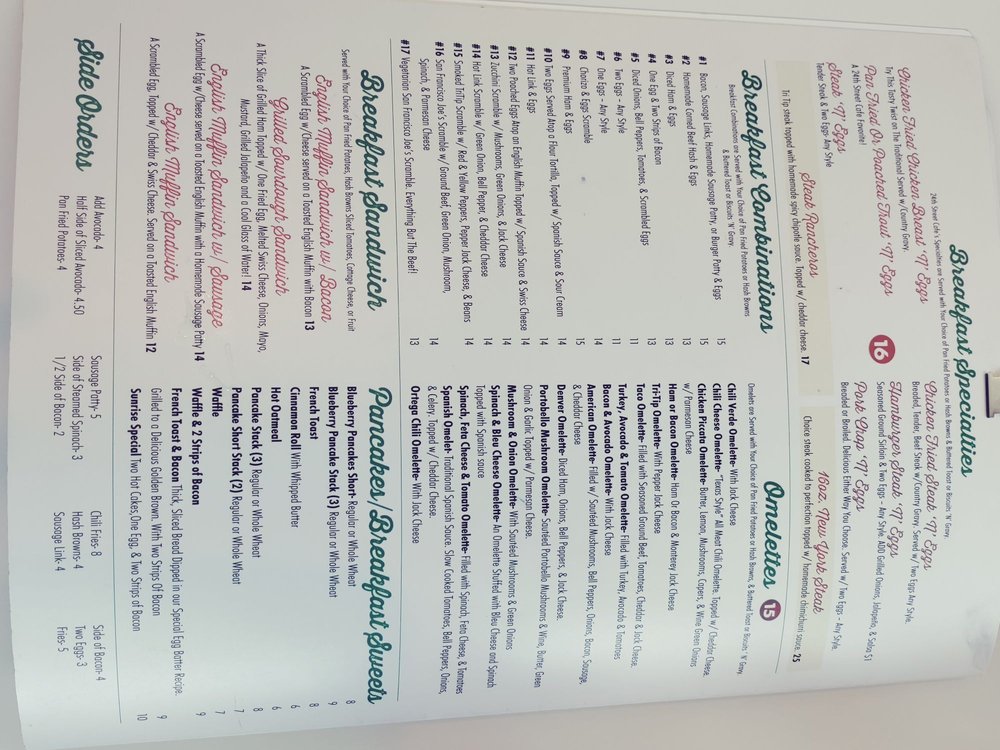 Breakfast Specialties
24th Street Cafe's Specialties are Served with Your Choice of Pan Fried Potatoes or Hash Browns & Buttered Toast or Biscuits 'N' Gravy.
Chicken Fried Chicken Breast 'N' Eggs
Try This Tasty Twist on The Traditional Served w/Country Gravy
Pan Fried Or Poached Trout 'N' Eggs
A 24th Street Cafe Favorite!
Steak 'N' Eggs
Tender Steak & Two Eggs- Any Style
16
Chicken Fried Steak 'N' Eggs
Breaded, Tender, Beef Steak w/Country Gravy, Served w/ Two Eggs Any Style.
Hamburger Steak 'N' Eggs
Seasoned Ground Sirloin & Two Eggs - Any Style. ADD Grilled Onions, Jalapeño, & Salsa $1
Pork Chop 'N' Eggs
Breaded or Broiled. Delicious Either Way You Choose. Served w/ Two Eggs - Any Style.
Steak Rancheros
Tri Tip steak topped with homemade spicy chipotle sauce. Topped w/ cheddar cheese. 17
16oz. New York Steak
Choice steak cooked to perfection topped w/ homemade chimichurri sauce. 25
Breakfast Combinations
Breakfast Combinations are Served with Your Choice of Pan Fried Potatoes or Hash Browns
& Buttered Toast or Biscuits 'N' Gravy.
#1 Bacon, Sausage Links, Homemade Sausage Patty, or Burger Patty & Eggs 15
#2 Homemade Corned Beef Hash & Eggs 15
#3 Diced Ham & Eggs 13
#4 One Egg & Two Strips of Bacon 13
#5 Diced Onions, Bell Peppers, Tomatoes, & Scrambled Eggs 11
#6 Two Eggs - Any Style 11
#7 One Eggs - Any Style
#8 Chorizo & Eggs Scramble 15
#9 Premium Ham & Eggs 14
#10 Two Eggs Served Atop a Flour Tortilla, Topped w/ Spanish Sauce & Sour Cream 14
#11 Hot Link & Eggs 14
#12 Two Poached Eggs Atop an English Muffin Topped w/ Spanish Sauce & Swiss Cheese
#13 Zucchini Scramble w/ Mushrooms, Green Onions, & Jack Cheese
#14 Hot Link Scramble w/ Green Onion, Bell Pepper, & Cheddar Cheese 14
#15 Smoked TriTip Scramble w/ Red & Yellow Peppers, Pepper Jack Cheese, & Beans 14
#16 San Francisco Joe's Scramble w/ Ground Beef, Green Onion, Mushroom,
Spinach, & Parmesan Cheese 14
#17 Vegetarian San Francisco Joe's Scramble. Everything But The Beef! 13
Omelettes 15
Omelettes are Served with Your Choice of Pan Fried Potatoes or Hash Browns, & Buttered Toast or Biscuits 'N' Gravy.
Chili Verde Omelette- With Jack Cheese
Chili Cheese Omelette- "Texas Style" All Meat Chili Omelette. Topped w/ Cheddar Cheese.
Chicken Piccata Omelette- Butter, Lemon, Mushrooms, Capers, & Wine Green Onions
w/ Parmesan Cheese
Ham or Bacon Omelette- Ham Or Bacon & Monterey Jack Cheese
Tri-Tip Omelette- With Pepper Jack Cheese
Taco Omelette- Filled with Seasoned Ground Beef, Tomatoes, Cheddar & Jack Cheese.
Turkey, Avocado & Tomato Omelette- Filled with Turkey, Avocado & Tomatoes
Bacon & Avocado Omelette- With Jack Cheese
Americana Omelette- Filled w/ Sautéed Mushrooms, Bell Peppers, Onions, Bacon, Sausage,
& Cheddar Cheese
Denver Omelette- Diced Ham, Onions, Bell Peppers, & Jack Cheese.
Portobello Mushroom Omelette- Sautéed Portobello Mushrooms & Wine, Butter, Green
Onion & Garlic Topped w/ Parmesan Cheese.
Mushroom & Onion Omelette- With Sautéed Mushrooms & Green Onions
Spinach & Bleu Cheese Omelette- An Omelette Stuffed with Bleu Cheese and Spinach
Topped with Spanish sauce
Spinach, Feta Cheese & Tomato Omelette- Filled with Spinach, Feta Cheese, & Tomatoes
Spanish Omelet- Traditional Spanish Sauce. Slow Cooked Tomatoes, Bell Peppers, Onions,
& Celery, Topped w/ Cheddar Cheese.
Ortega Chili Omelette- With Jack Cheese
Breakfast Sandwich
Served with Your Choice of Pan Fried Potatoes, Hash Browns Sliced Tomatoes, Cottage Cheese, or Fruit
English Muffin Sandwich w/ Bacon
A Scrambled Egg w/Cheese served on a Toasted English Muffin with Bacon 13
Grilled Sourdough Sandwich
A Thick Slice of Grilled Ham Topped w/ One Fried Egg, Melted Swiss Cheese, Onions, Mayo,
Mustard, Grilled Jalapeño and a Cool Glass of Water! 14
English Muffin Sandwich w/ Sausage
A Scrambled Egg w/Cheese served on a Toasted English Muffin with a Homemade Sausage Patty 14
English Muffin Sandwich
A Scrambled Egg, Topped w/ Cheddar & Swiss Cheese. Served on a Toasted English Muffin 12
Pancakes/Breakfast Sweets
Blueberry Pancakes Short- Regular or Whole Wheat 8
Blueberry Pancake Stack (3) Regular or Whole Wheat 9
French Toast 8
Cinnamon Roll With Whipped Butter 6
Hot Oatmeal 6
Pancake Stack (3) Regular or Whole Wheat 8
Pancake Short Stack (2) Regular or Whole Wheat 7
Waffle 7
Waffle & 2 Strips of Bacon 9
French Toast & Bacon Thick, Sliced Bread Dipped in our Special Egg Batter Recipe.
Grilled to a Delicious Golden Brown. With Two Strips Of Bacon 9
Sunrise Special Two Hot Cakes,One Egg, & Two Strips of Bacon 10
Side Orders
Add Avocado-4
Half Side of Sliced Avocado- 4.50
Pan Fried Potatoes- 4
Sausage Patty- 5
Side of Steamed Spinach- 3
1/2 Side of Bacon- 2
Chili Fries- 8
Hash Browns- 4
Sausage Link- 4
Side of Bacon-4
Two Eggs- 3
Fries- 5